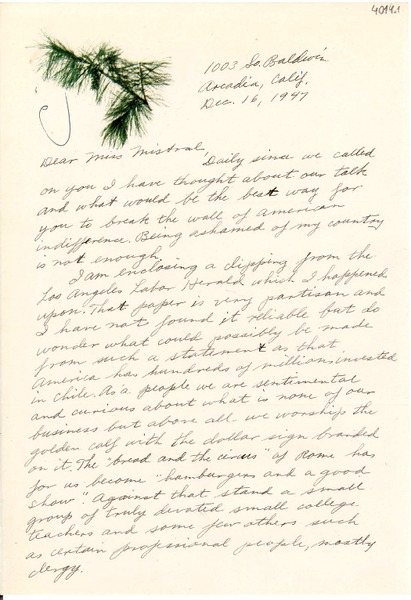 40141
1003 So. Baldwin
Arcadia, Calif.
Dec. 16, 1947
Dear Miss Mistral,
Daily since we called
on you I have thought about our talk
and what would be the best way for
you to break the wall of American
indifference. Being ashamed of my country
is not enough.
I am enclosing a clipping from the
Los Angeles Labor Herald which I happened
upon. That paper is very partisan and
I have not found it reliable but do
wonder what could possibly be made
from such a statement as that
America has hundreds of millions invested
in Chile. As a people we are sentimental
and curious about what is none of our
business but above all we worship the
golden calf with the dollar sign branded
on it. The "bread and the circus" of Rome has
for us become "hamburgers and a good
show". Against that stand a small
group of truly devoted small college
teachers and some few others such
as certain professional people, mostly
clergy.